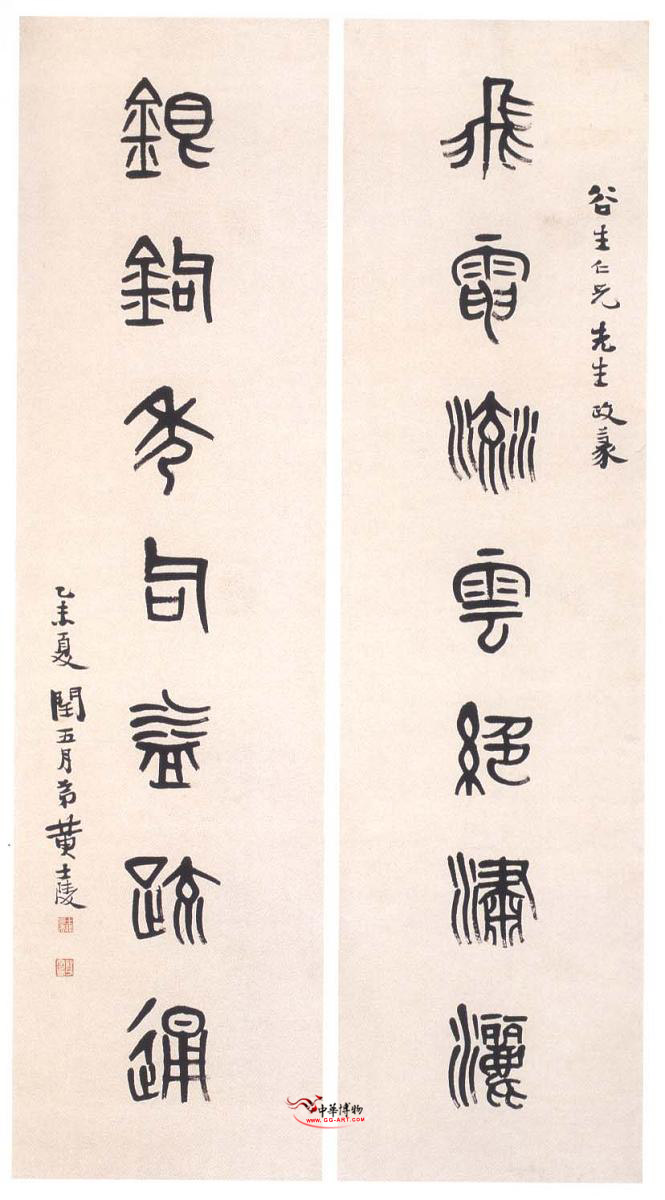 谷生仁兄先生政篆
飛電流雲絕瀟灑
銀鉤秀句益疏通
乙未夏閏五月弟黃士陵
中華博物
WWW.GG-ART.COM